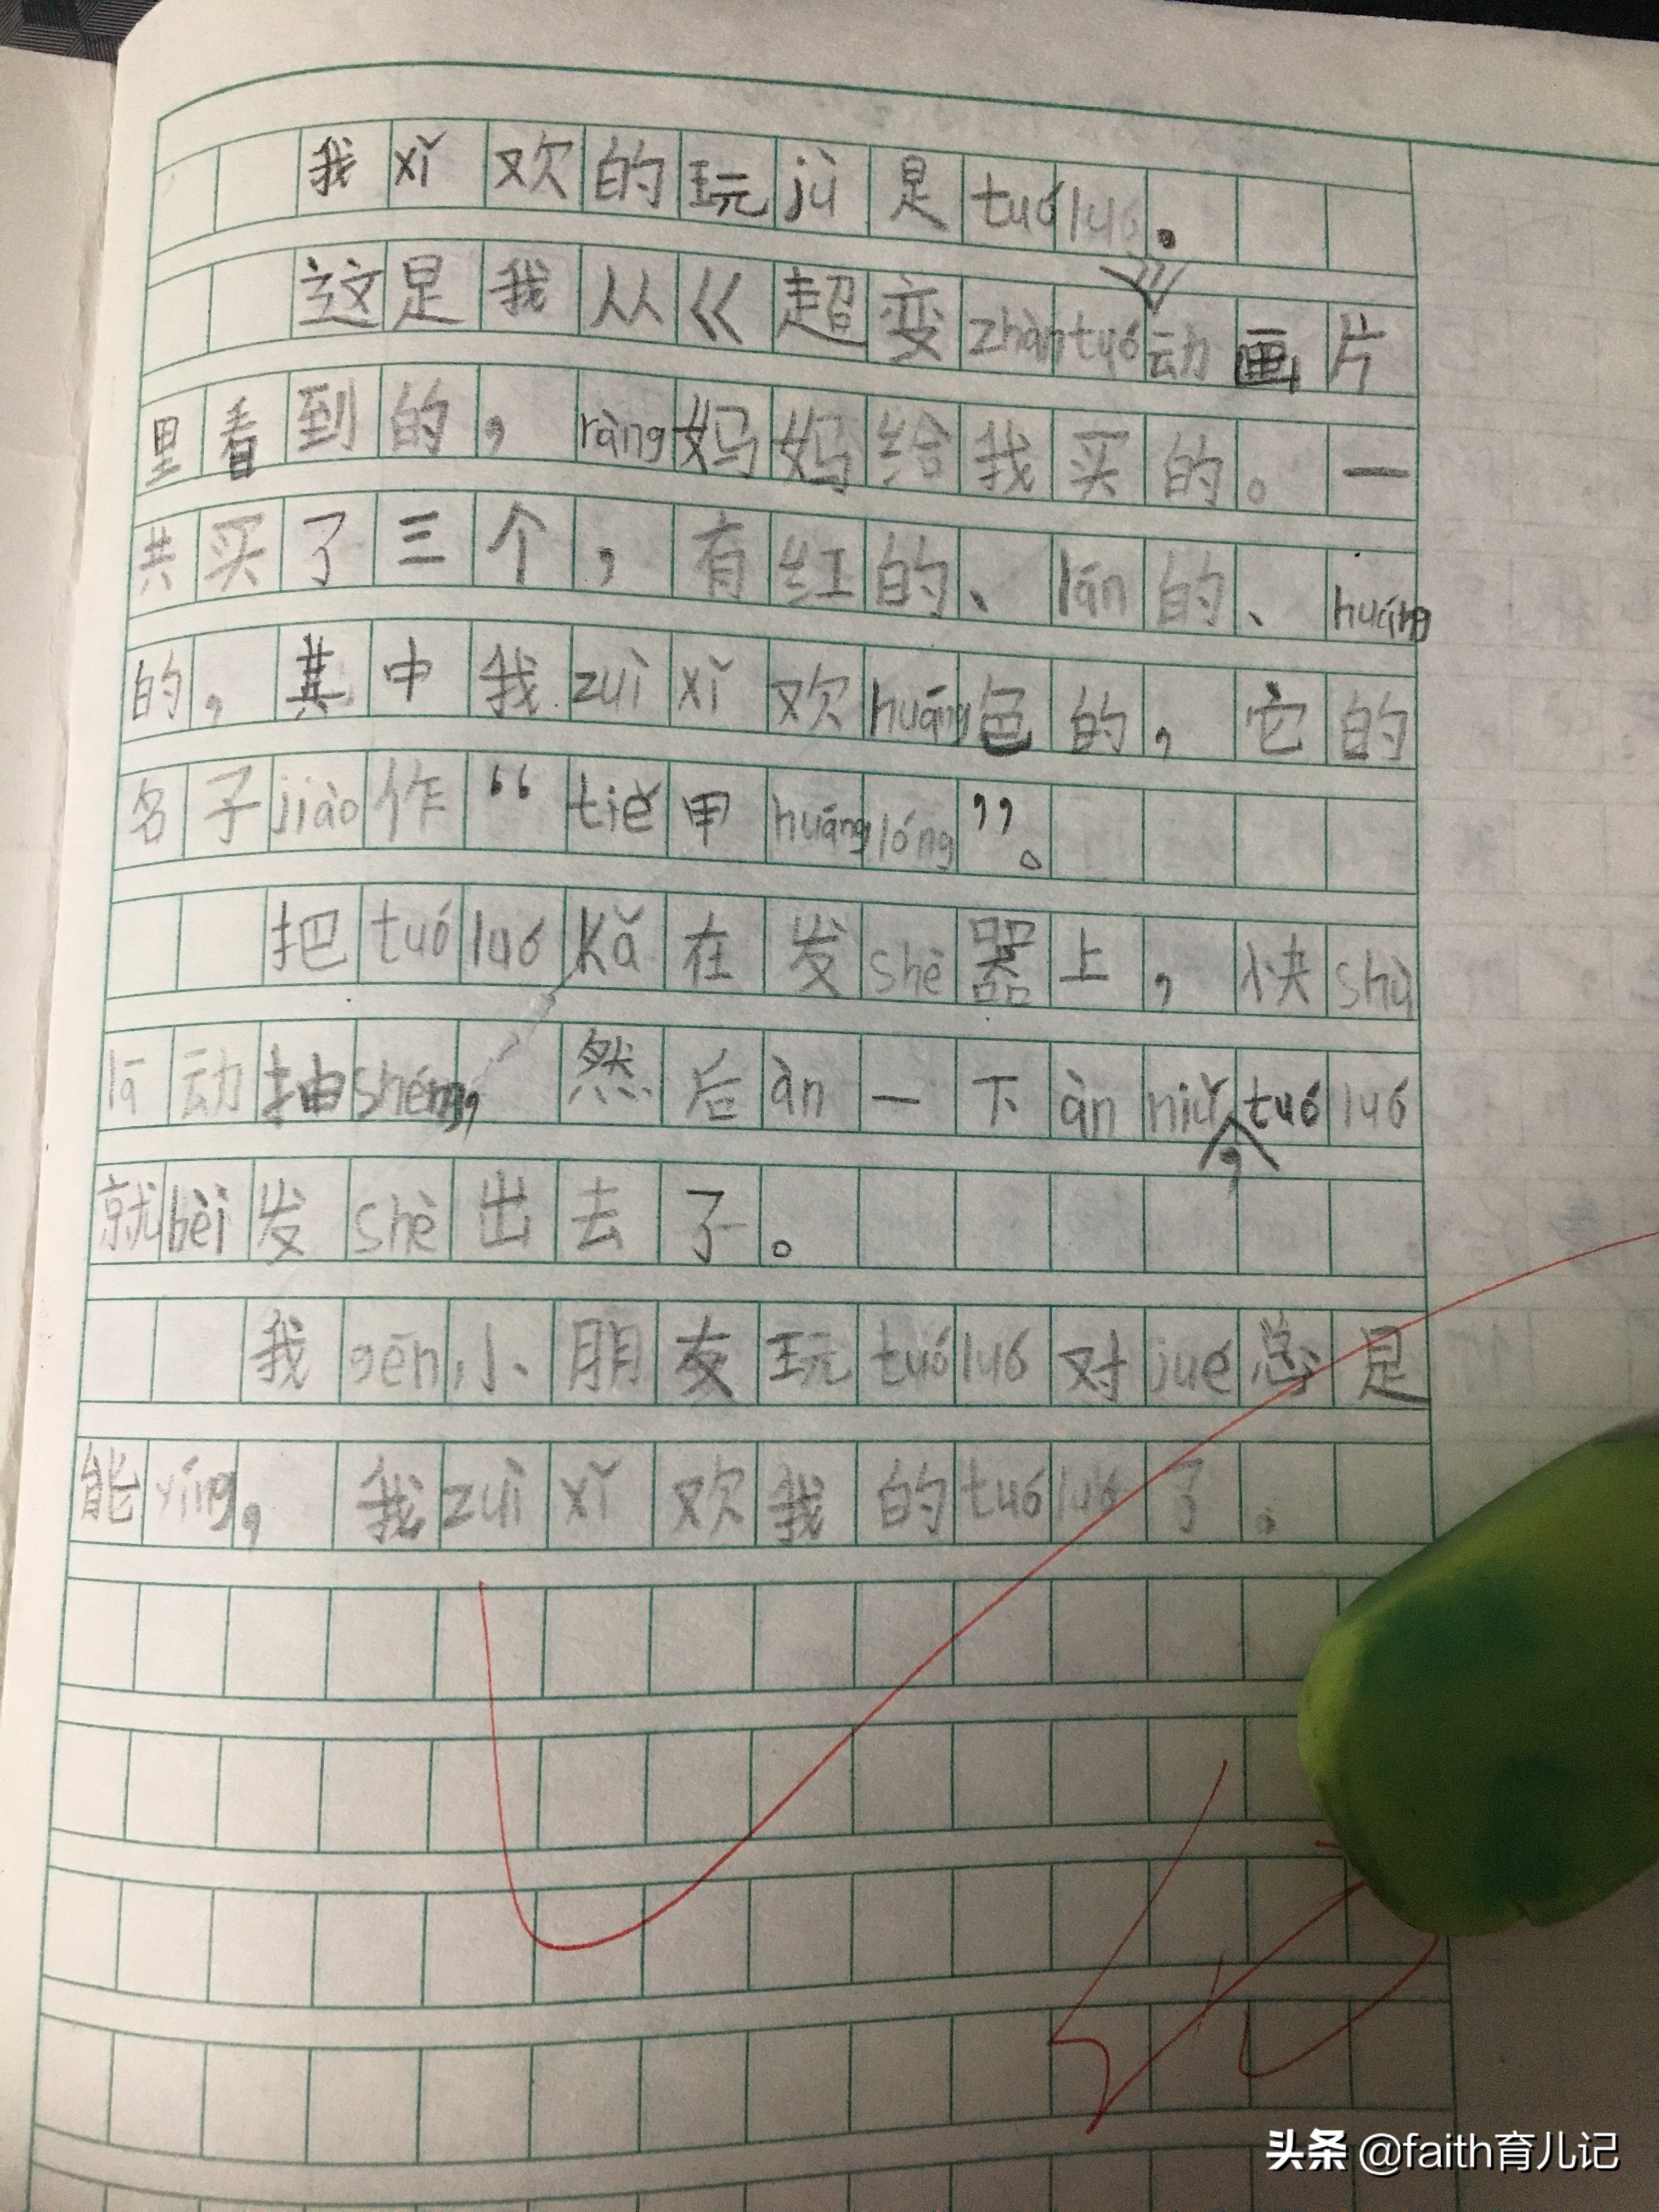 我xǐ欢的玩jù是tuóluó。
这是我从《超变zhàntuó》动画片
里看到的，ràng妈妈给我买的。一
共买了三个，有红的、lán的、huáng
的，其中我zuì xǐ欢huáng色的，它的
名子jiào作“tiě甲huánglóng”。
把tuó luó kǎ在发shè器上，快shù
lā动抽shéng，然后àn一下àn niǔ，tuó luó
就bèi发shè出去了。
我gēn小朋友玩tuóluó对jué总是
能yíng，我zuì xǐ欢我的tuóluó了。
头条 @faith育儿记